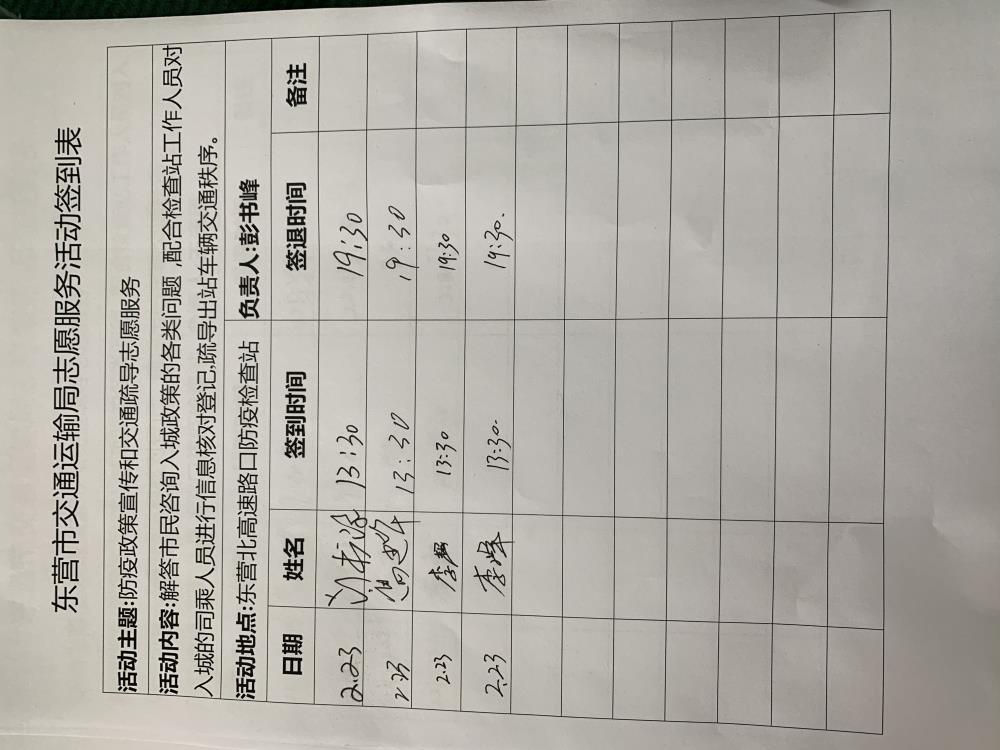 东营市交通运输局志愿服务活动签到表
活动主题:防疫政策宣传和交通疏导志愿服务
活动内容:解答市民咨询入城政策的各类问题 配合检查站工作人员对
入城的司乘人员进行信息核对登记,疏导出站车辆交通秩序。
活动地点:东营北高速路口防疫检查站 负责人:彭书峰
日期 姓名 签到时间 签退时间 备注
2.23 13:30 19:30
2.23 13:30 19:30
2.23 13:30 19:30
2.23 李峰 13:30. 19:30.